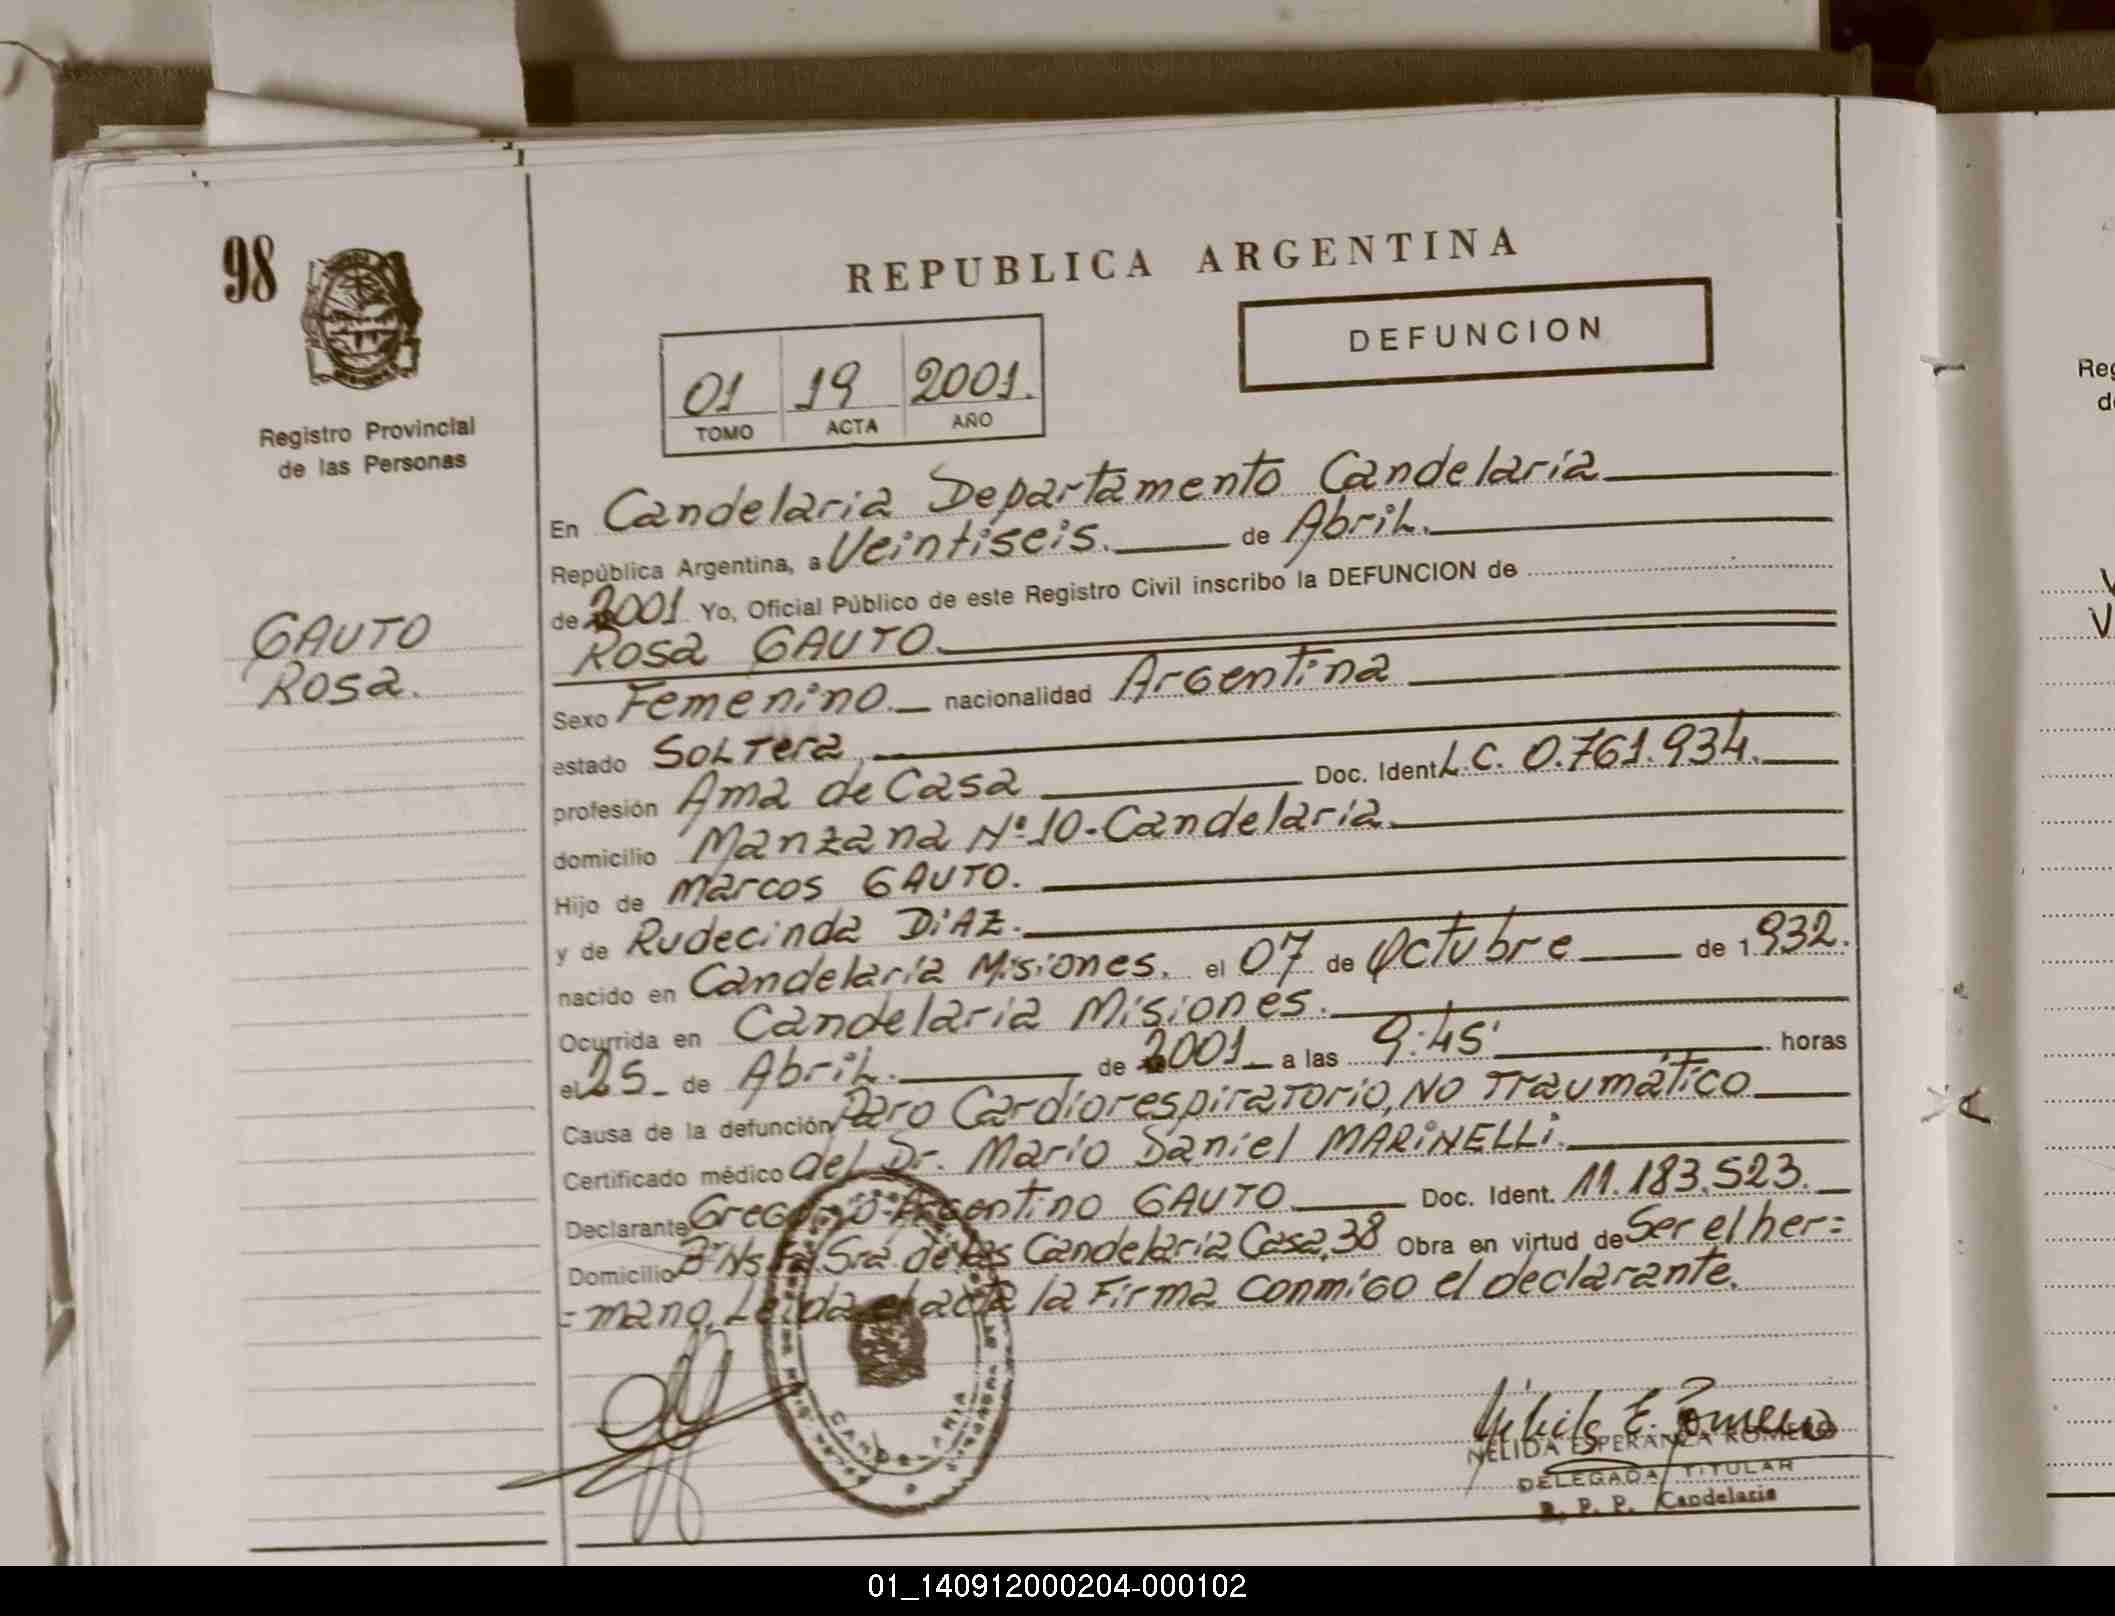 98
REPUBLICA ARGENTINA
DEFUNCION
01 19 2001.
TOMO ACTA AÑO
Registro Provincial
de las Personas
GAUTO
Rosa.
En Candelaria Departamento Candelaria
República Argentina, a Veintiseis. de Abril.
de 2001 Yo, Oficial Público de este Registro Civil inscribo la DEFUNCION de
Rosa GAUTO.
Sexo Femenino. nacionalidad Argentina
estado Soltera
profesión Ama de Casa Doc. Ident. L.C. 0.761.934.
domicilio Manzana Nº 10-Candelaria.
Hijo de Marcos GAUTO.
y de Rudecinda DiAZ.
nacido en Candelaria Misiones. el 07 de Octubre de 1.932.
Ocurrida en Candelaria Misiones.
el 25 de Abril. de 2001 a las 9:45' horas
Causa de la defunción Paro Cardiorespiratorio, No Traumático
Certificado médico del Dr. Mario Daniel MARiNELLi.
Declarante Gregorio Argentino GAUTO Doc. Ident. 11.183.523.
Domicilio Sra. de las Candelaria Casa 38 Obra en virtud de Ser el her=
=mano. Leida el acta la Firma conmigo el declarante.
CANDELARIA
NELIDA ESPERANZA ROMERO
DELEGADA TITULAR
R. P. P. Candelaria
Reg
de
V
V
01_140912000204-000102